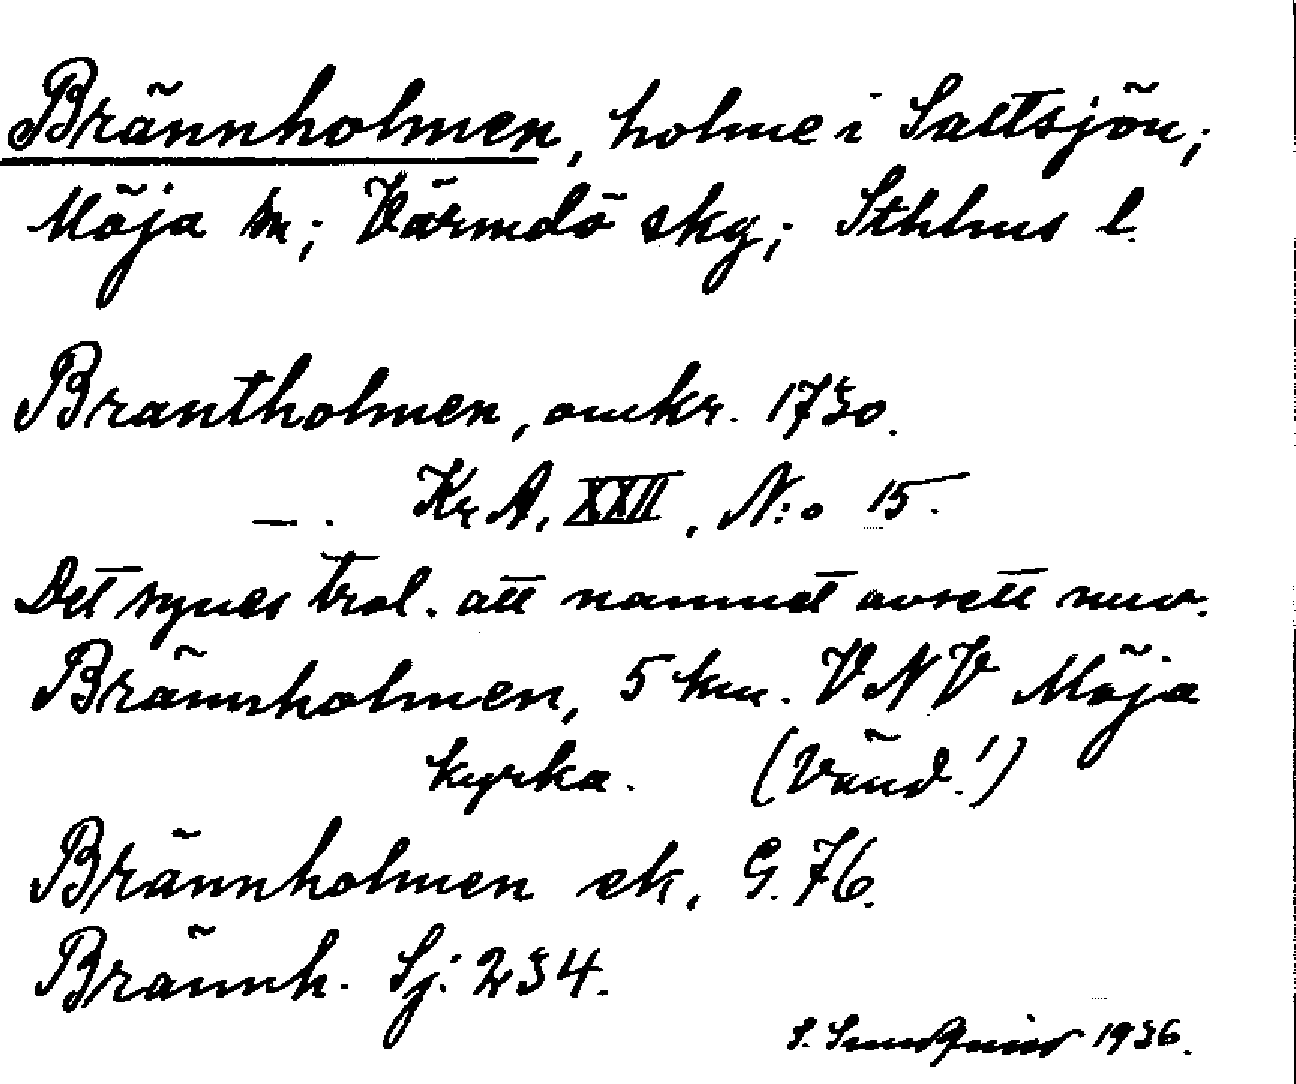 Brännholmen, holme i Saltsjön;
Möja sn; Värmdö skg; Sthlms l.
Brantholmen, omkr. 1730.
—. Kr A. XXII, N:o 15.
Det synes trol. att namnet avsett nuv.
Brännholmen, 5 km. VNV Möja
kyrka. (Vänd!)
Brännholmen ek, G. 76.
Brännh. Sj: 234.
S. Sundquist 1936.